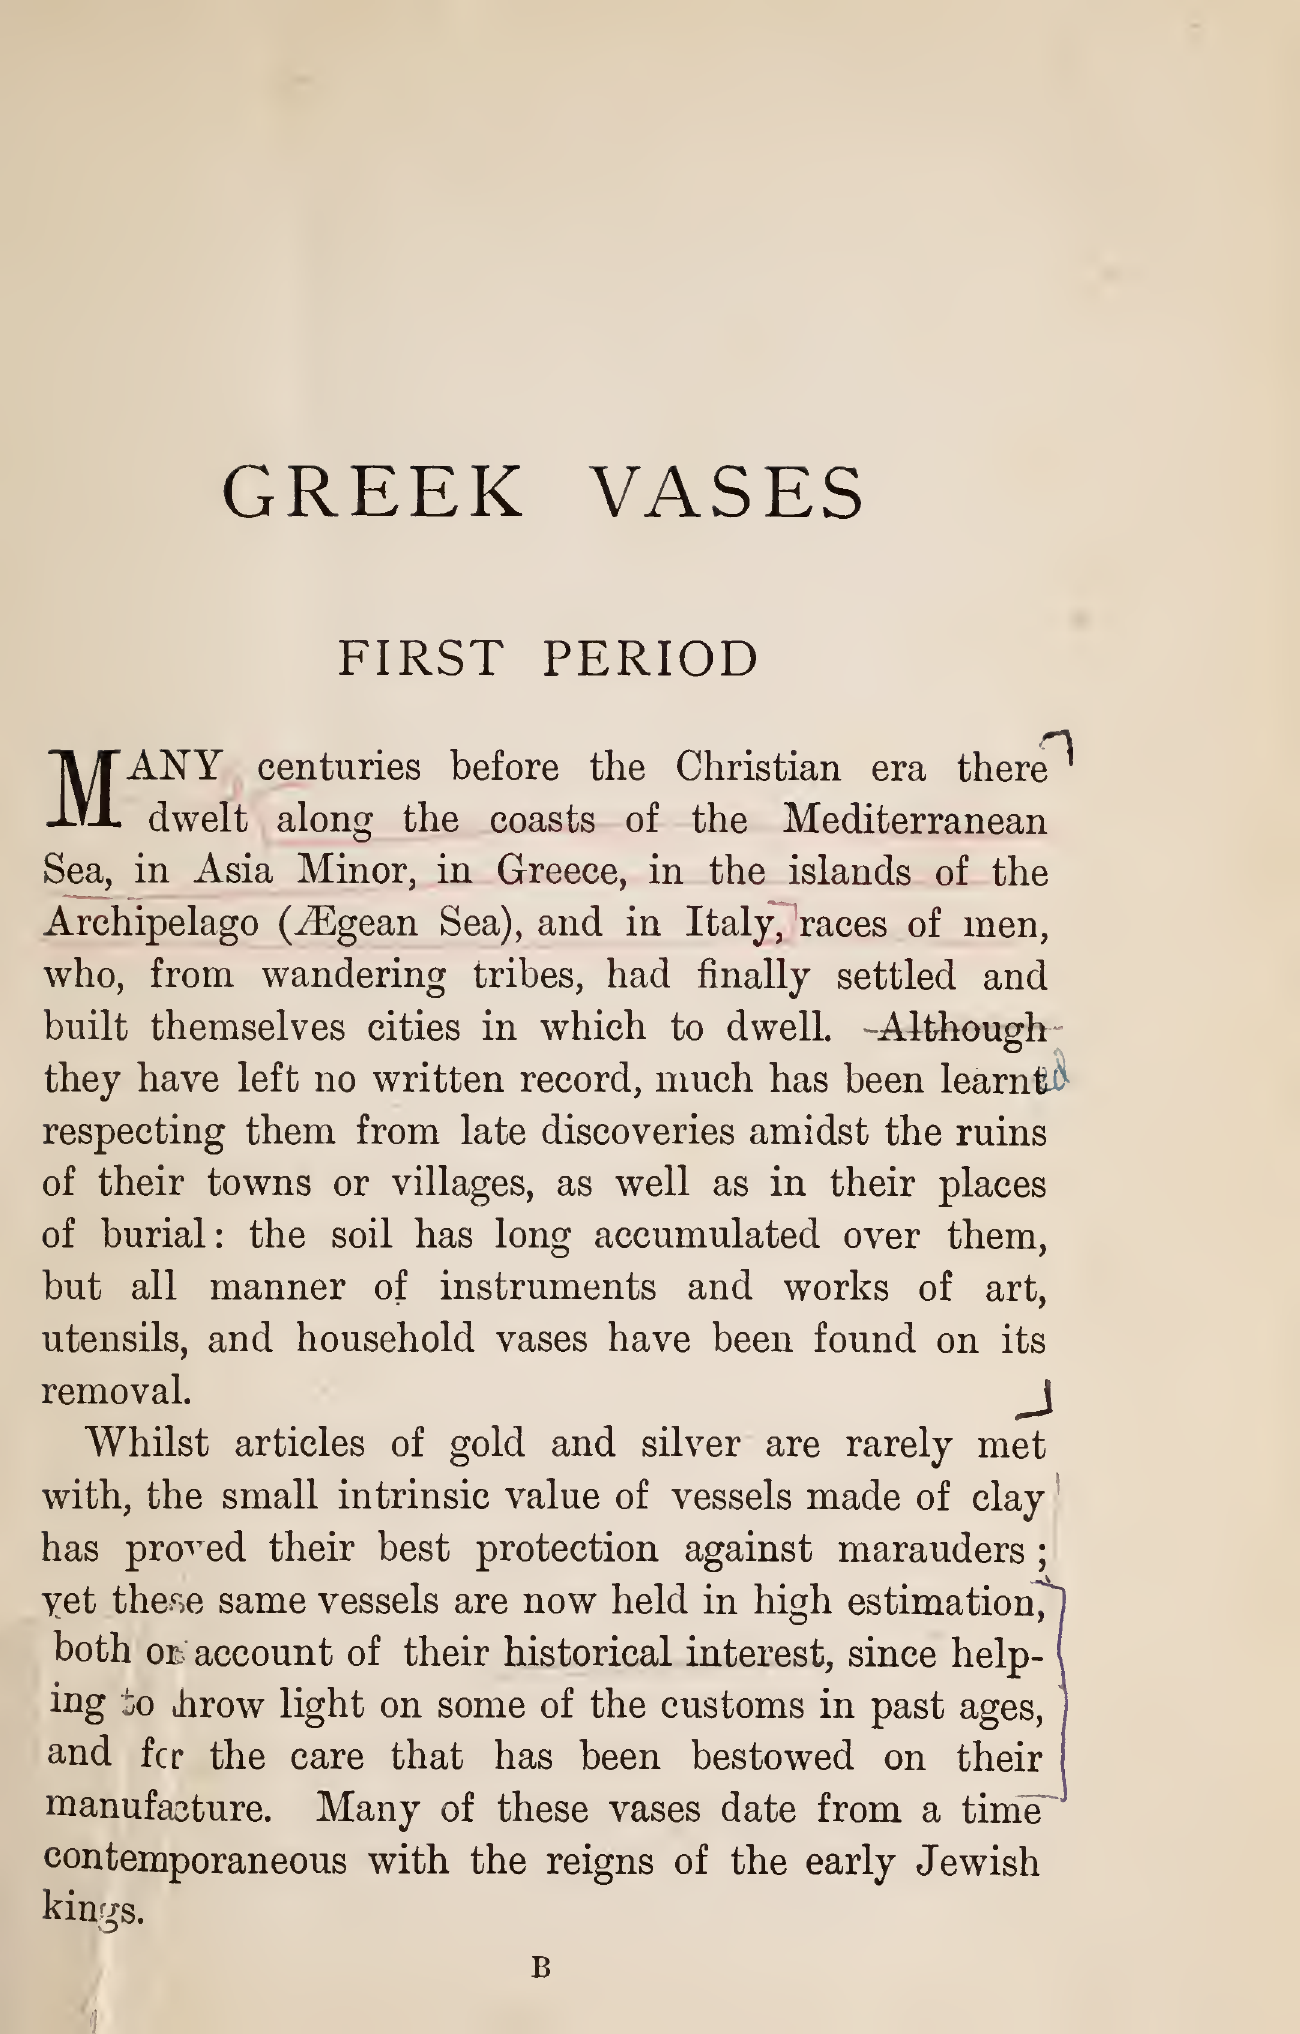 GREEK VASES
FIRST PERIOD
MANY centuries before the Christian era there
dwelt along the coasts of the Mediterranean
Sea, in Asia Minor, in Greece, in the islands of the
Archipelago (Ægean Sea), and in Italy, races of men,
who, from wandering tribes, had finally settled and
built themselves cities in which to dwell. Although
they have left no written record, much has been learnt
respecting them from late discoveries amidst the ruins
of their towns or villages, as well as in their places
of burial: the soil has long accumulated over them,
but all manner of instruments and works of art,
utensils, and household vases have been found on its
removal.
Whilst articles of gold and silver are rarely met
with, the small intrinsic value of vessels made of clay
has proved their best protection against marauders;
yet these same vessels are now held in high estimation,
both on account of their historical interest, since help-
ing to throw light on some of the customs in past ages,
and for the care that has been bestowed on their
manufacture. Many of these vases date from a time
contemporaneous with the reigns of the early Jewish
kings.
B